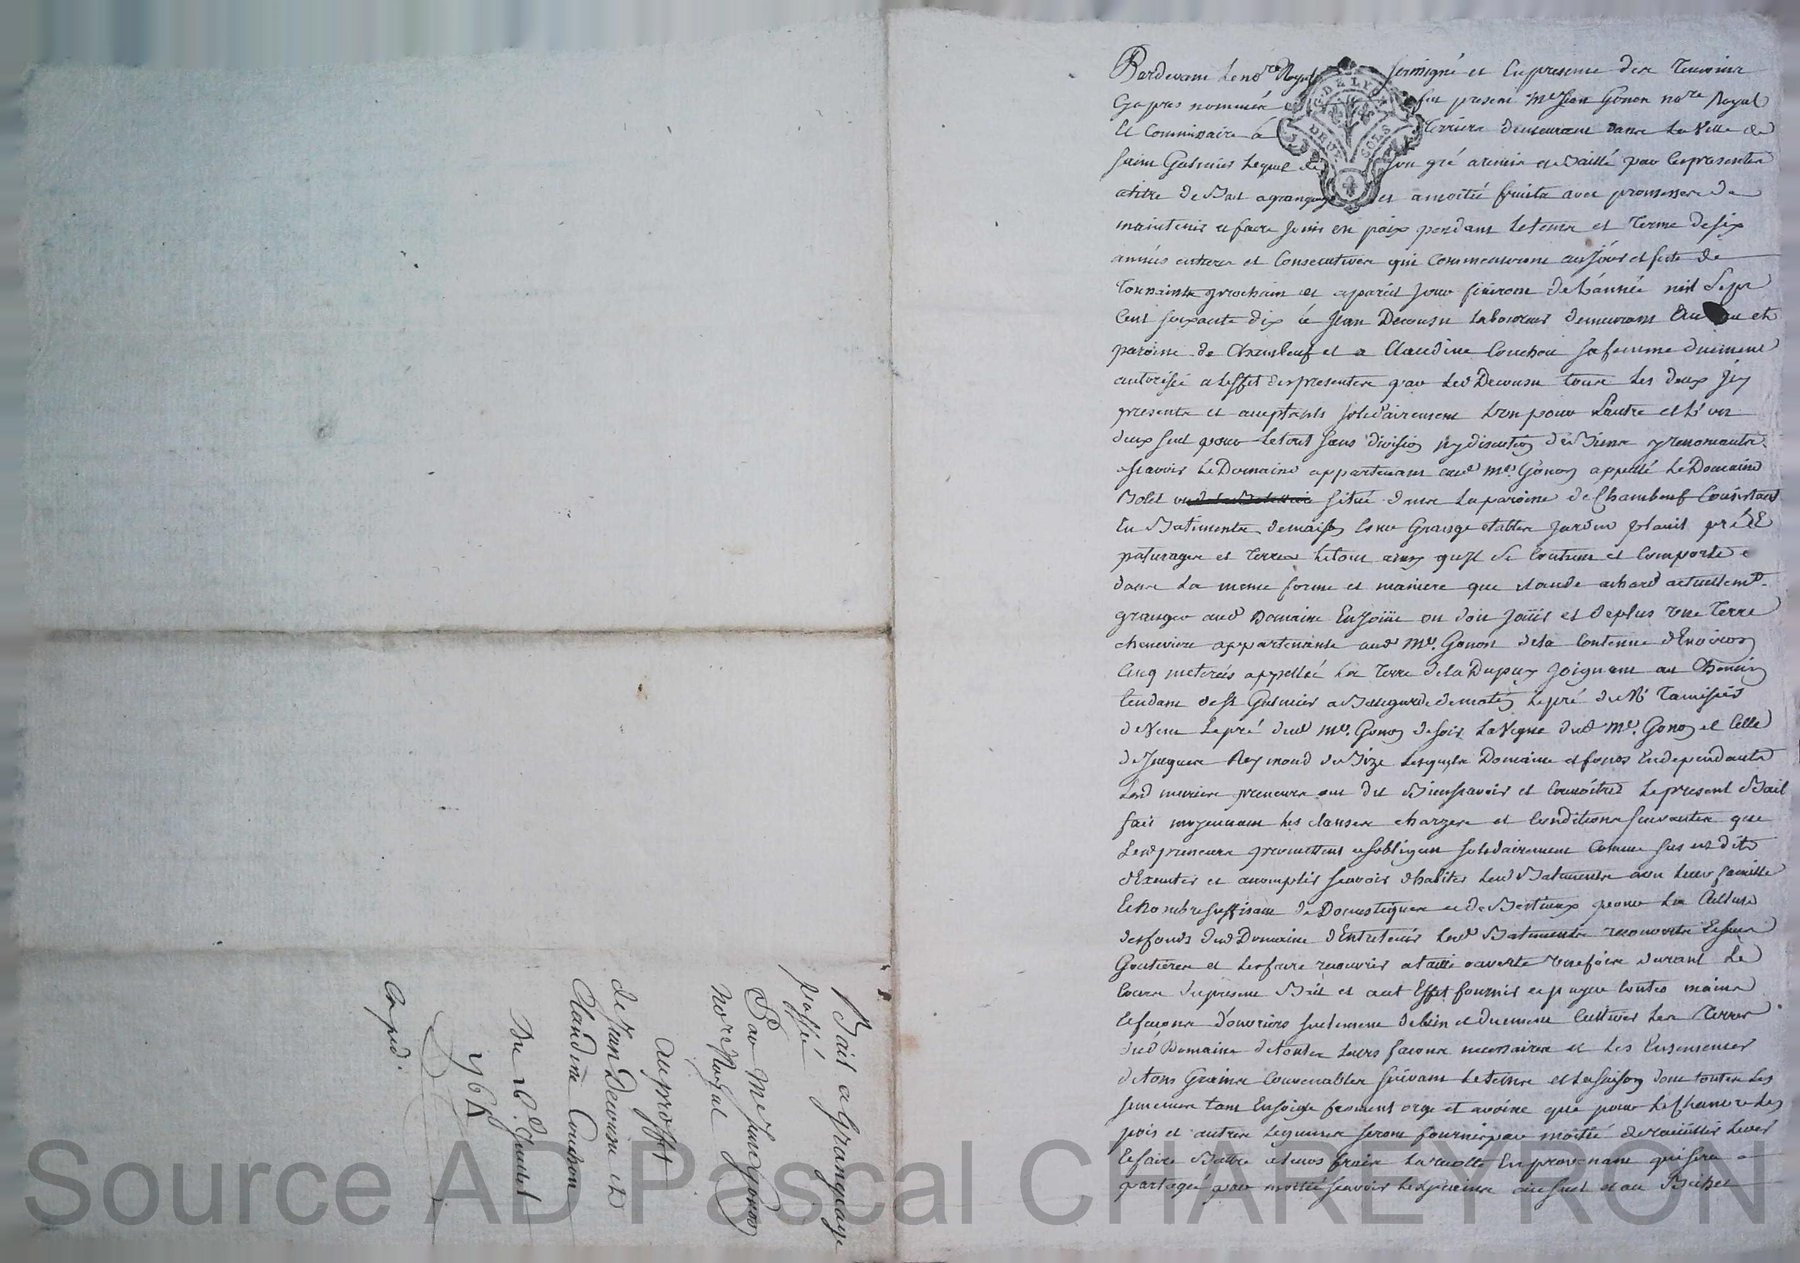 Pardevant le no.re Royal soussigné et en presence des Temoins
Cy apres nommés fut present Me Jean Gonon no.re Royal
Et Commissaire à Terriers demeurant dans la Ville de
saint Galmier lequel de son gré a remis et Baillé par ces presentes
a titre de Bail a grangeage et a moitié fruits avec promesse de
maintenir et faire jouir en paix pendant le tems et Terme de six
années entieres et Consecutives qui Commenceront au jour et feste de
Toussaints prochain et a pareil jour finiront de l'année mil Sept
Cent soixante dix à Jean Decousu laboureur demeurant au et
paroisse de Chambeuf et a Claudine Couchou sa femme duement
autorisée a leffet des presentes par led Decousu tous les deux jcy
presents et acceptants solidairement l'un pour l'autre et l'un
deux seul pour le tout sans division ny discution de Biens y renonceants
scavoir le Domaine appartenant aud Me Gonon appellé le Domaine
situé dans la paroisse de Chambeuf Consistant
En Batiments de maison Cour Grange etables jardin prés
paturages et Terres le tout ainsy qu'il se Contient et Comporte
dans la meme forme et maniere que claude achard actuellemt.
granger aud Domaine En joüit ou doit joüir et deplus une Terre
cheneviere appartenante aud Me. Gonon dela Contenue d'Environ
Cinq meterées appellée la Terre de la Dupuy joignant au Chemin
tendant de St Galmier a Bellegarde de matin le pré de Tamisier
de vent le pré dud Me. Gonon de soir la Vigne dud Me. Gonon et Celle
de Jacques Reymond de Bize lesquels Domaine et fonds En dependants
lesd mariés preneurs ont dit Bien scavoir et Connoitre le present Bail
fait moyennant les clauses charges et Conditions suivantes que
lesd preneurs promettent et sobligent solidairement Comme sus est dit
d'Executer et accomplir scavoir d'habiter lesd Batiments avec leur famille
Et Nombre suffisant de Domestiques et de Bestiaux pour la Culture
des fonds dud Domaine d'Entretenir lesd Batiments recouverts
Goutieres et les faire recouvrir a taille ouverte une fois durant le
Cours du present Bail et a cet Effet fournir et payer toutes mains
et façons d'ouvriers seulement de bien et duement Cultiver les Terres
dud Domaine de toutes leurs façons necessaires et les Ensemencer
de tons Grains Convenables suivant le tems et la saison dont toutes les
semences tant En seigle froment orge et avoine que pour le chanvre les
pois et autres legumes seront fournis par moitié de recuillir lever
et faire Battre a leurs frais la recolte En provenant qui sera
partagée par moitié scavoir les grains au sueil et au Bichet
Bail a Grangeage
passé
Par Me Jean Gonon
No.re Royal
Au proffit
de Jean Decousu et
Claudine Couchou
Du 28. juillet
1764
Exped.
G. DE LYON
DEUX SOLS
Source AD Pascal CHARETRON